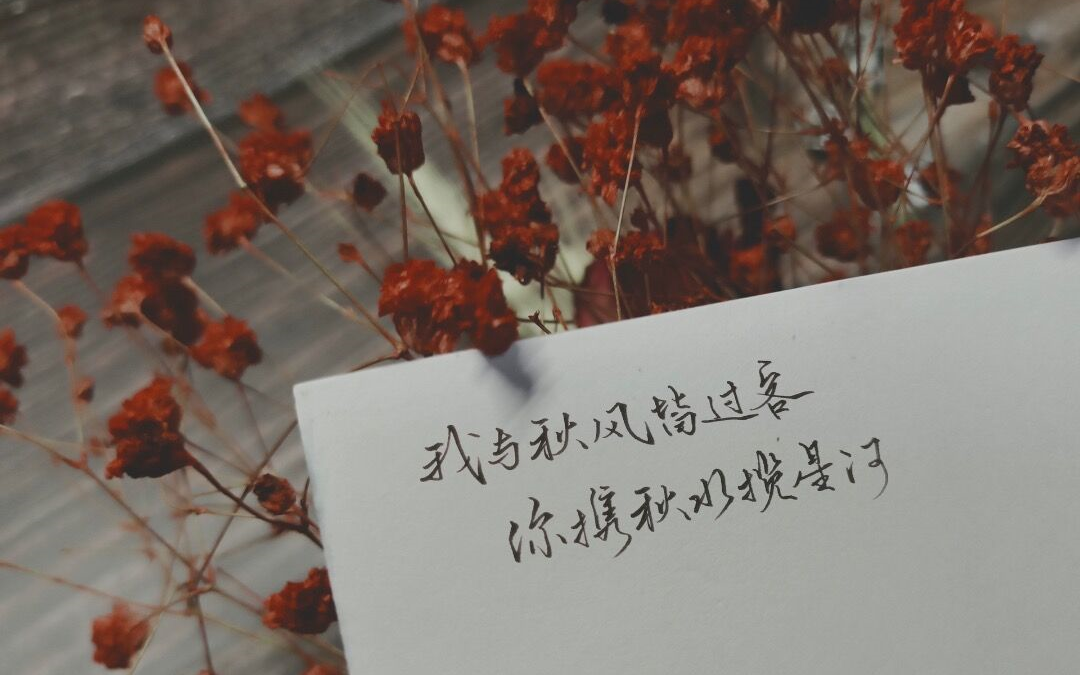 我与秋风皆过客
你携秋水揽星河